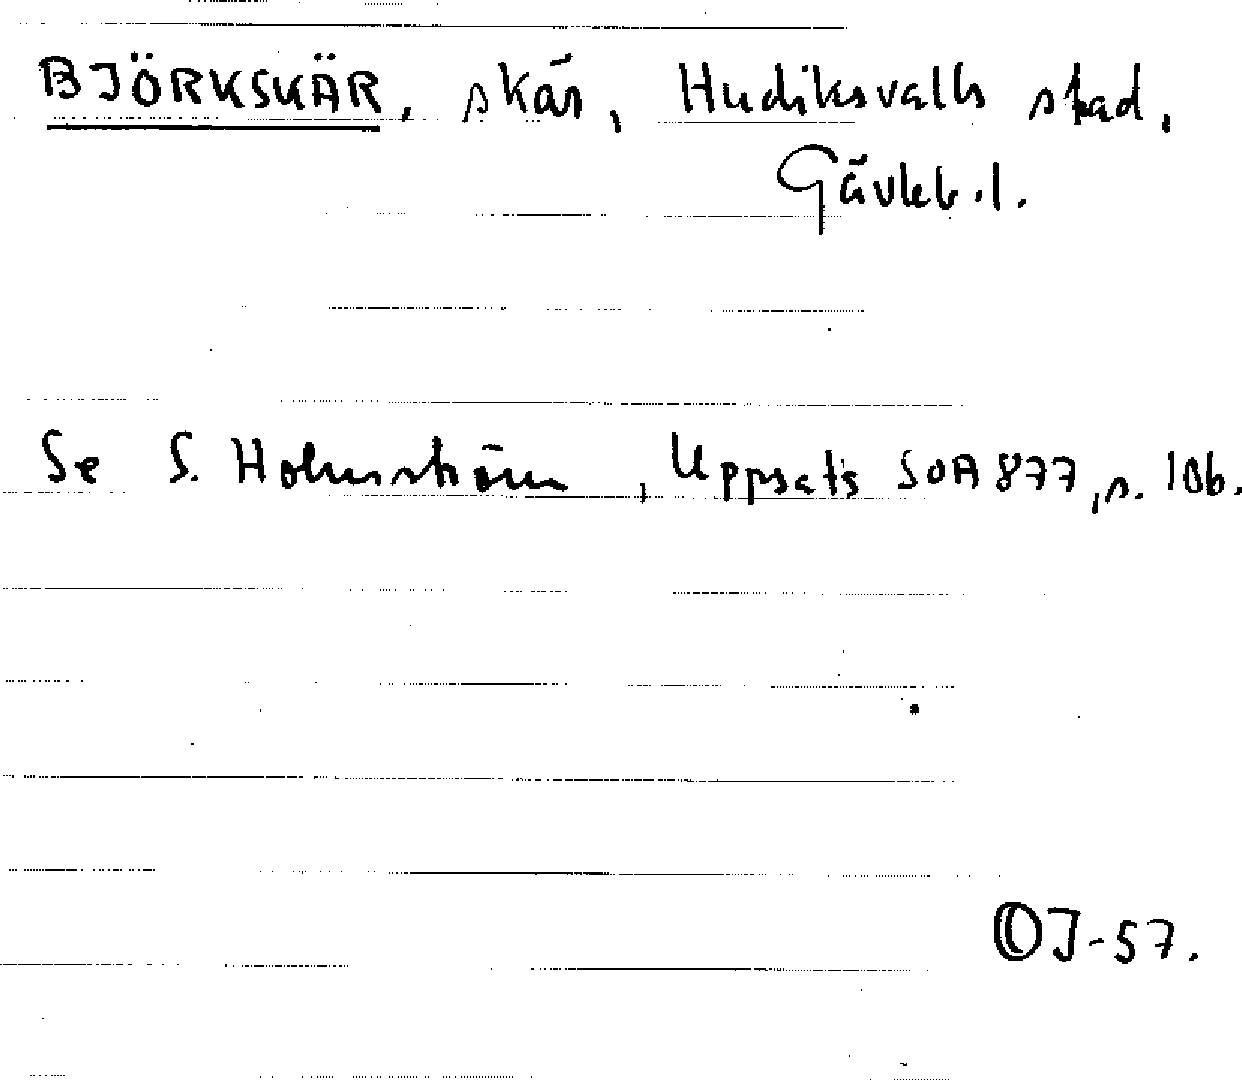 BJÖRKSKÄR, skär, Hudiksvalls stad,
Gävleb.l.
Se S. Holmström, Uppsats SOA 877, s. 106.
OJ-57.